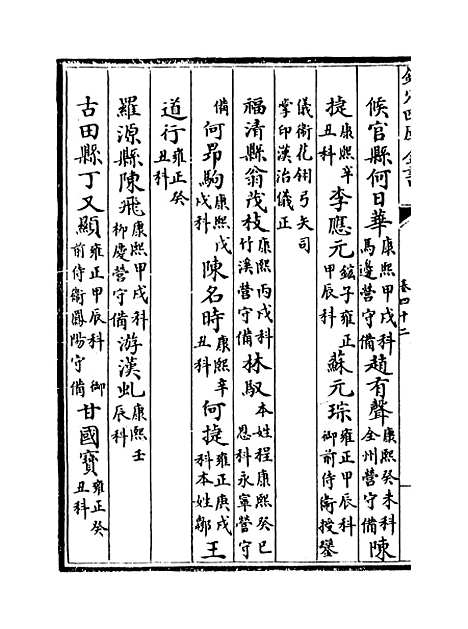 欽定四庫全書
卷四十二
候官縣何日華康熙甲戌科馬邊營守備趙有聲康熙癸未科全州營守備陳
捷康熙辛丑科李應元鉉子雍正甲辰科蘇元琮雍正甲辰科御前侍衛授鑾
儀衛花鈅弓矢司掌印漢治儀正
福清縣翁茂枝康熙丙戌科竹溪營守備林馭本姓程康熙癸巳恩科永寧營守
備何昂駒康熙戊戌科陳名時康熙辛丑科何捷雍正庚戌科本姓鄒王
道行雍正癸丑科
羅源縣陳飛康熙甲戌科柳慶營守備游漢虬康熙壬辰科
古田縣丁又顯雍正甲辰科御前侍衛鳳陽守備甘國寶雍正癸丑科